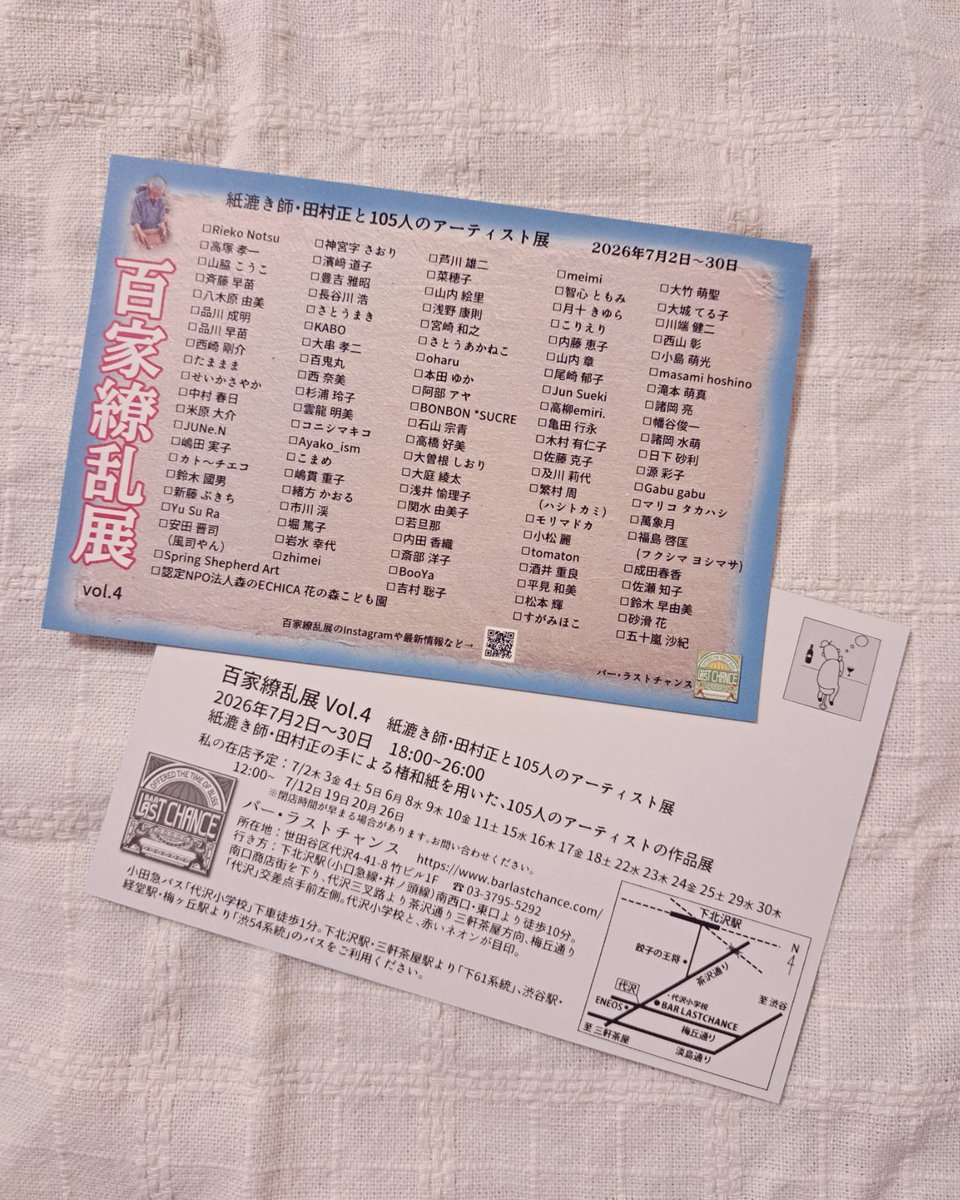 紙漉き師・田村正と105人のアーティスト展
2026年7月2日〜30日
百家繚乱展
vol.4
□Rieko Notsu
□高塚 孝一
□山脇 こうこ
□斉藤 早苗
□八木原 由美
□品川 成明
□品川 早苗
□西崎 剛介
□たままま
□せいかさやか
□中村 春日
□米原 大介
□JUNe.N
□嶋田 実子
□カト〜チエコ
□鈴木 國男
□新藤 ぶきち
□Yu Su Ra
□安田 晋司
（風司やん）
□Spring Shepherd Art
□認定NPO法人森のECHICA 花の森こども園
□神宮字 さおり
□濱﨑 道子
□豊吉 雅昭
□長谷川 浩
□さとうまき
□KABO
□大串 孝二
□百鬼丸
□西 奈美
□杉浦 玲子
□雲龍 明美
□コニシマキコ
□Ayako_ism
□こまめ
□嶋貫 重子
□緒方 かおる
□市川 渓
□堀 篤子
□岩水 幸代
□zhimei
□芦川 雄二
□菜穂子
□山内 絵里
□浅野 康則
□宮崎 和之
□さとうあかねこ
□oharu
□本田 ゆか
□阿部 アヤ
□BONBON *SUCRE
□石山 宗青
□高橋 好美
□大曽根 しおり
□大庭 綾太
□浅井 愉理子
□関水 由美子
□若旦那
□内田 香織
□斎部 洋子
□BooYa
□吉村 聡子
□meimi
□智心 ともみ
□月十 きゆら
□こりえり
□内藤 恵子
□山内 章
□尾崎 郁子
□Jun Sueki
□高柳emiri.
□亀田 行永
□木村 有仁子
□佐藤 克子
□及川 莉代
□繁村 周
（ハシトカミ）
□モリマドカ
□小松 麗
□tomaton
□酒井 重良
□平見 和美
□松本 輝
□すがみほこ
□大竹 萌聖
□大城 てる子
□川端 健二
□西山 彰
□小島 萌光
□masami hoshino
□滝本 萌真
□諸岡 亮
□幡谷俊一
□諸岡 水萌
□日下 砂利
□源 彩子
□Gabu gabu
□マリコ タカハシ
□萬象月
□福島 啓匡
(フクシマ ヨシマサ)
□成田春香
□佐瀬 知子
□鈴木 早由美
□砂滑 花
□五十嵐 沙紀
百家繚乱展のInstagramや最新情報など→
バー・ラストチャンス
LAST CHANCE
百家繚乱展 Vol.4 紙漉き師・田村正と105人のアーティスト展
2026年7月2日〜30日 18:00~26:00
紙漉き師・田村正の手による楮和紙を用いた、105人のアーティストの作品展
私の在店予定：7/2木 3金 4土 5日 6月 8水 9木 10金 11土 15水 16木 17金 18土 22水 23木 24金 25土 29水 30木
12:00~ 7/12日 19日 20月 26日
※閉店時間が早まる場合があります。お問い合わせください。
バー・ラストチャンス https://www.barlastchance.com/
所在地：世田谷区代沢4-41-8 竹ビル1F ☎03-3795-5292
行き方：下北沢駅(小口急線・井ノ頭線)南西口・東口より徒歩10分。
南口商店街を下り、代沢三叉路より茶沢通り三軒茶屋方向、梅丘通り
「代沢」交差点手前左側。代沢小学校と、赤いネオンが目印。
小田急バス「代沢小学校」下車徒歩1分。下北沢駅・三軒茶屋駅より「下61系統」、渋谷駅・
経堂駅・梅ヶ丘駅より「渋54系統」のバスをご利用ください。
OFFERED THE TIME OF BLISS
LAST CHANCE
下北沢駅
N
4
餃子の王将
茶沢通り
至 渋谷
代沢
代沢小学校
ENEOS
BAR LASTCHANCE
至 三軒茶屋
梅丘通り
淡島通り